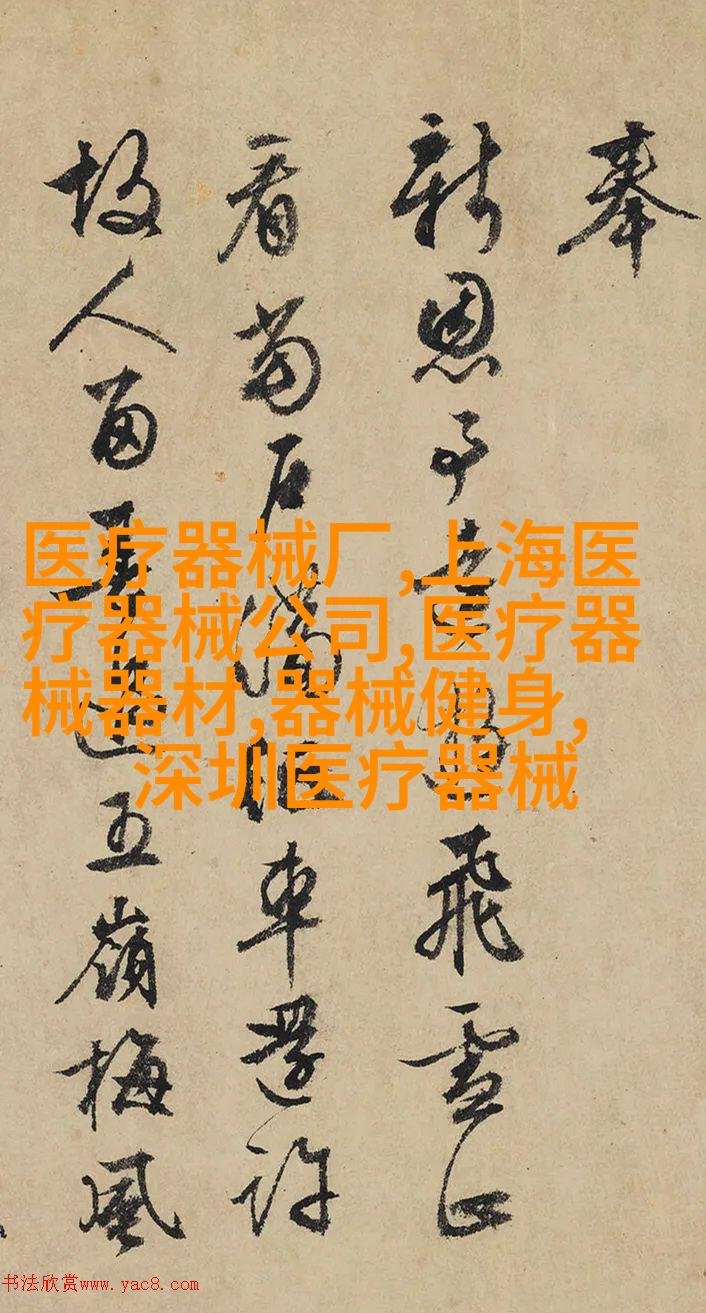 奉
新恩予飛雪正
看后滿車還許
故人留五嶺梅風
医疗器械厂,上海医
疗器械公司,医疗器
械器材,器械健身,
深圳医疗器械
书法欣赏www.yac8.com